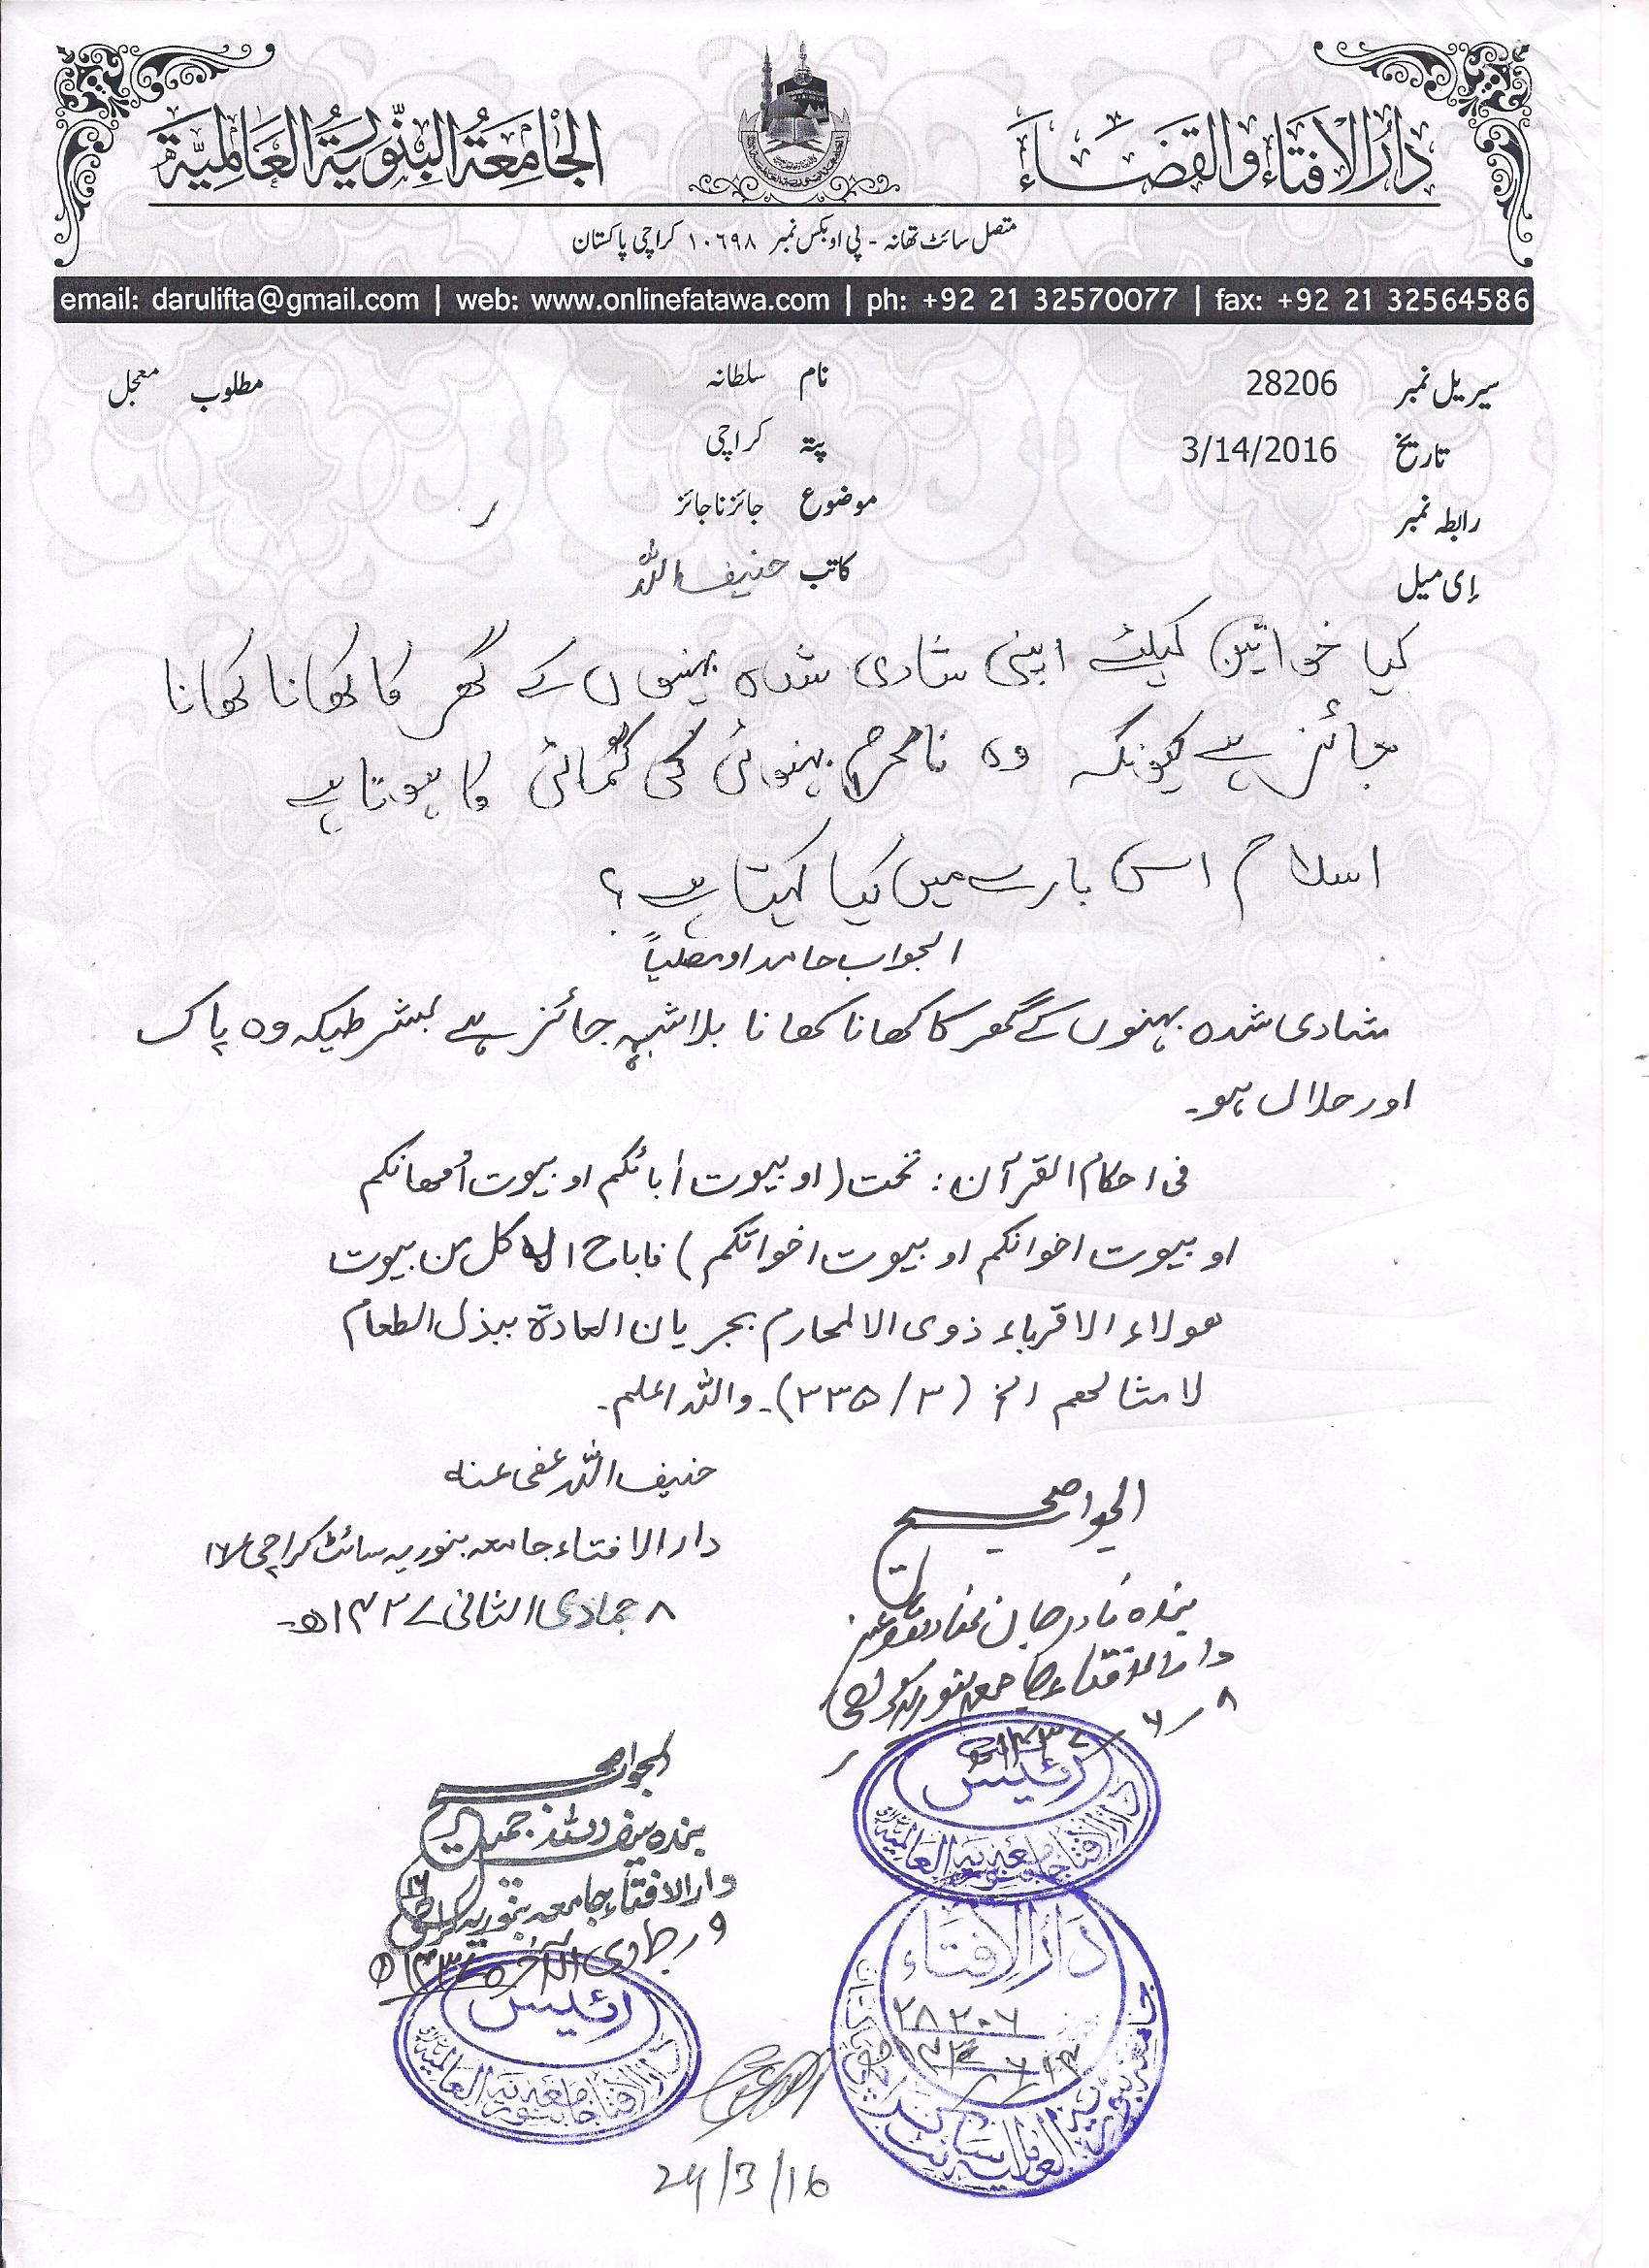 دار الافتاء والقضاء
الجامعة البنورية العالمية
متصل سائٹ تھانہ - پی او بکس نمبر ۱۰۶۹۸ کراچی پاکستان
email: darulifta@gmail.com | web: www.onlinefatawa.com | ph: +92 21 32570077 | fax: +92 21 32564586
سیریل نمبر 28206 نام سلطانہ مطلوب معجل
تاریخ 3/14/2016 پتہ کراچی
رابطہ نمبر موضوع جائز ناجائز
ای میل کاتب حنیف اللہ
کیا خواتین کیلئے اپنی شادی شدہ بہنوں کے گھر کا کھانا کھانا
جائز ہے کیونکہ وہ نامحرم بہنوئی کی کمائی کا ہوتا ہے
اسلام اس بارے میں کیا کہتا ہے؟
الجواب حامدا ومصلیاً
شادی شدہ بہنوں کے گھر کا کھانا کھانا بلاشبہ جائز ہے بشرطیکہ وہ پاک
اور حلال ہو۔
فی احکام القرآن: تحت (او بیوت اٰبائکم او بیوت اُمھاتکم
او بیوت اخوانکم او بیوت اخواتکم) فاباح الاکل من بیوت
ھولاء الاقرباء ذوی الالمحارم بجریان العادۃ ببذل الطعام
لامثالھم الخ (۳/۳۳۵)۔ واللہ اعلم۔
حنیف اللہ عفی عنہ
دار الافتاء جامعہ بنوریہ سائٹ کراچی ۱۶
۸ جمادی الثانی ۱۴۳۷ھ۔
الجواب صحیح
بندہ نادر جان
دار الافتاء جامعہ بنوریہ کراچی
۸/۶/۱۴۳۷ھ
رئیس
دار الافتاء جامعہ بنوریہ العالمیہ
الجواب صحیح
بندہ
دار الافتاء جامعہ بنوریہ کراچی ۱۶
۹ جمادی الآخرۃ ۱۴۳۷ھ
رئیس
دار الافتاء جامعہ بنوریہ العالمیہ
دار الافتاء
۲۸۲۰۶
جامعہ بنوریہ العالمیہ
24/3/16